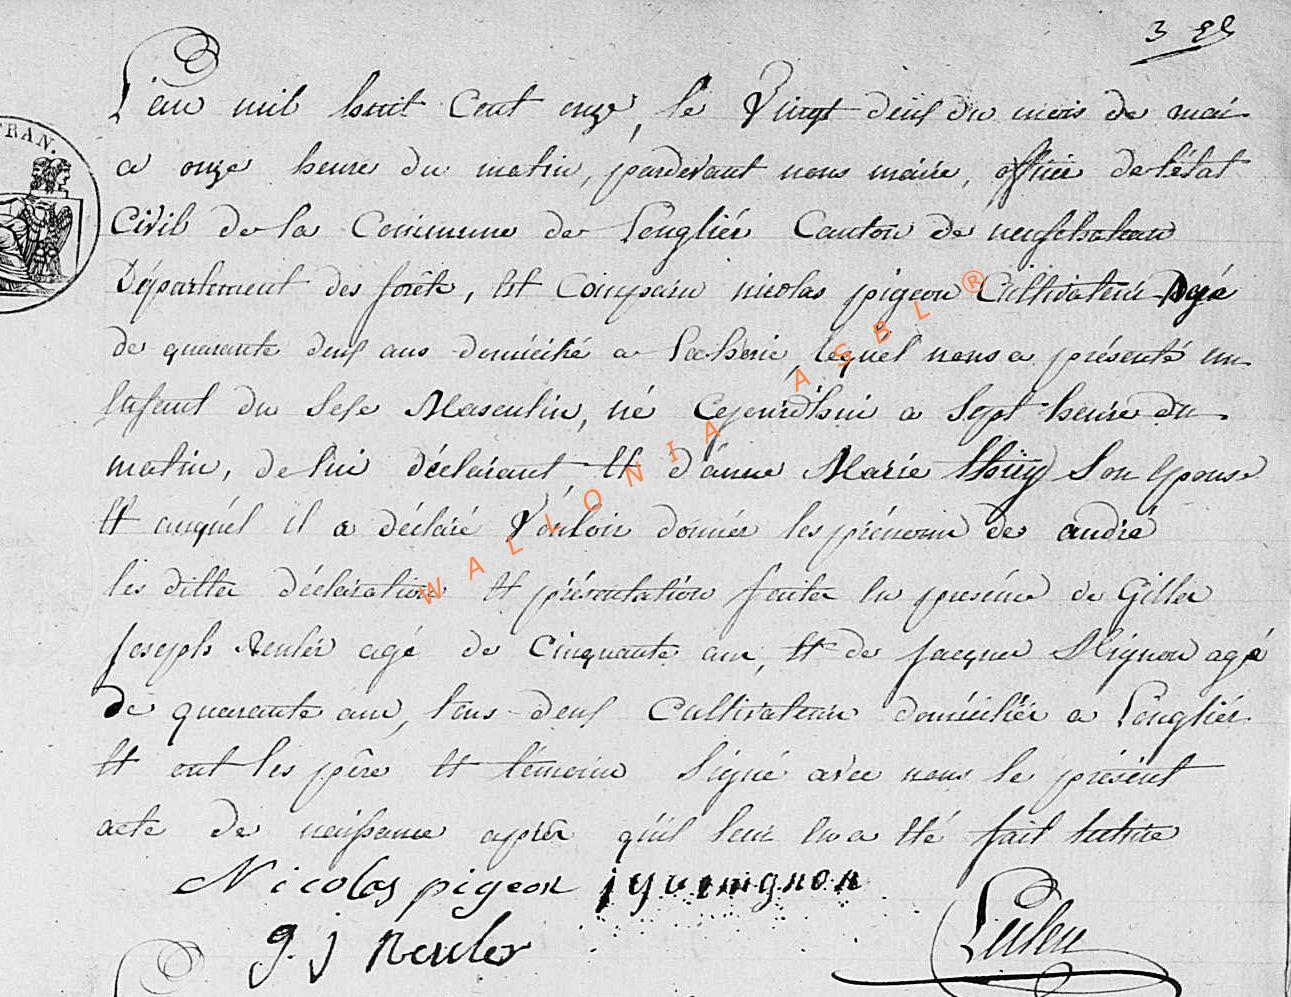 L'an mil huit cent onze, le Vingt deus du mois de mai
a onze heure du matin, pardevant nous maire, officier de l'état
Civil de la Commune de Longliér Canton de neufchateau
Département des forêts, Et Comparu nicolas pigeon Cultivateur Agé
de quarante deus ans domicilié a lequel nous a présenté un
Enfant du Sexe Masculin, né Cejourdhui a Sept heure du
matin, de lui déclarant, Et d'anne Marie Son Epouse
Et auquél il a déclaré Vouloir donnér les prénom de andré
les dittes déclaration Et présentation faites En présence de Gilles
Joseph Reulér agé de Cinquante ans, Et de Jacques Mignon agé
de quarante ans, tous deus Cultivateurs domiciliés a Longliér
Et ont les père Et témoins Signé avec nous le présent
acte de naissance après qu'il leur En a Eté fait lecture
Nicolas pigeon mignon
g. j Reuler
FRAN.
WALLONIA ASBL ®